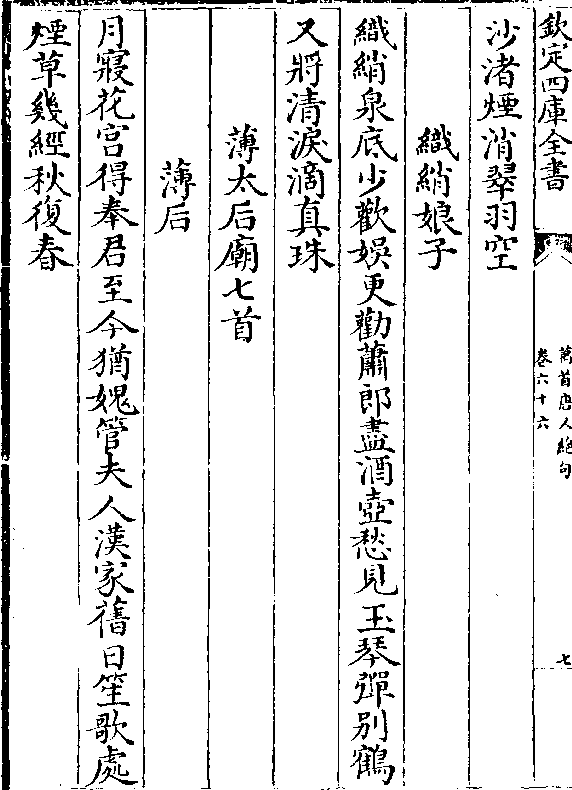 欽定四庫全書
萬首唐人絶句
卷六十六
七
沙渚煙消翠羽空
織綃娘子
織綃泉底少歡娱更勸蕭郎盡酒壺愁見玉琴彈别鶴
又將清淚滴真珠
薄太后廟七首
薄后
月寢花宫得奉君至今猶媿管夫人漢家舊日笙歌處
煙草幾經秋復春